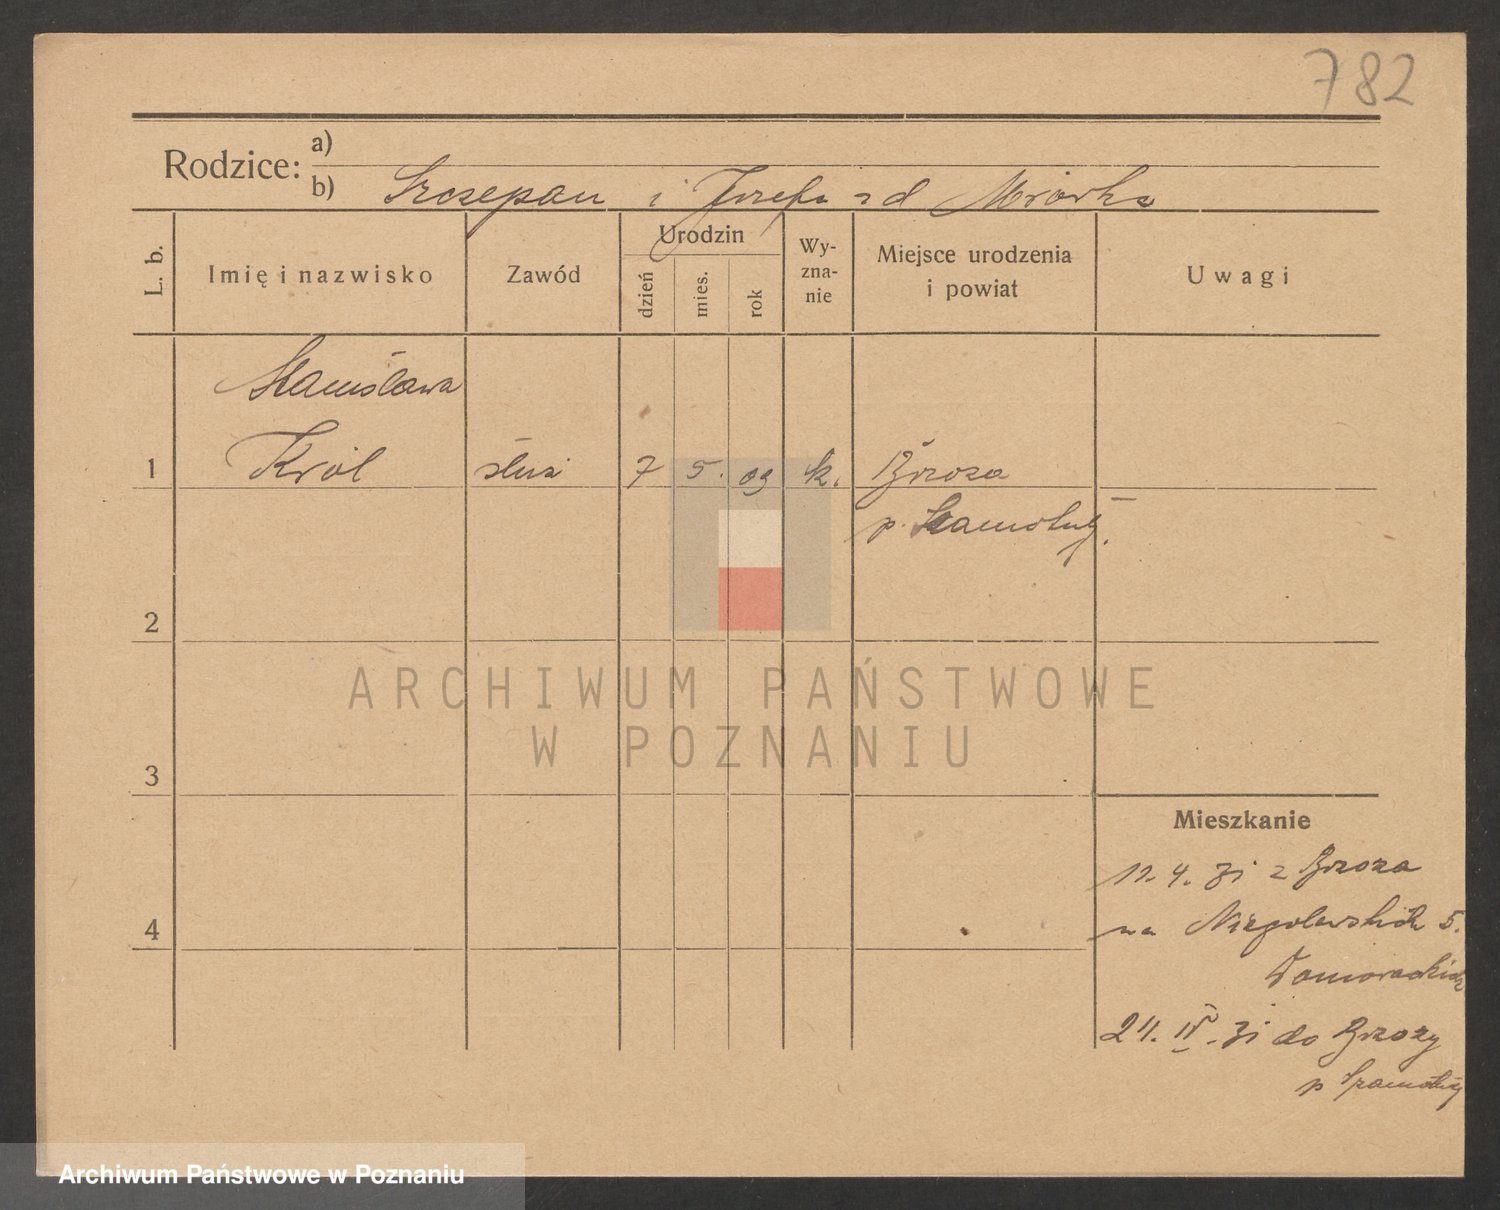 782
Rodzice: a)
b) Szczepan i Józefa zd Mrówka
L. b.
Imię i nazwisko
Zawód
Urodzin
dzień
mies.
rok
Wy-
zna-
nie
Miejsce urodzenia
i powiat
Uwagi
Stanisława
1 Król służ 7 5. 09 k. Brzoza
p. Szamotuły.
2
3
4
Mieszkanie
4. 31 z Brzoza
na Niegolewskich 5.
IV. 31 do Brzozy
p Szamotuły
ARCHIWUM PAŃSTWOWE
W POZNANIU
Archiwum Państwowe w Poznaniu